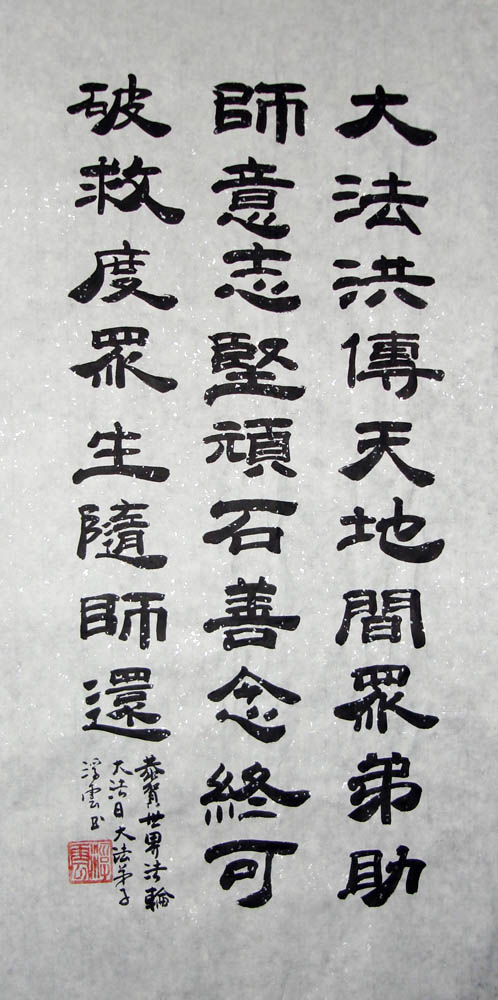 大法洪傳天地間眾弟助
師意志堅頑石善念終可
破救度眾生隨師還
恭賀世界法輪
大法日大法弟子
浮雲书
浮雲